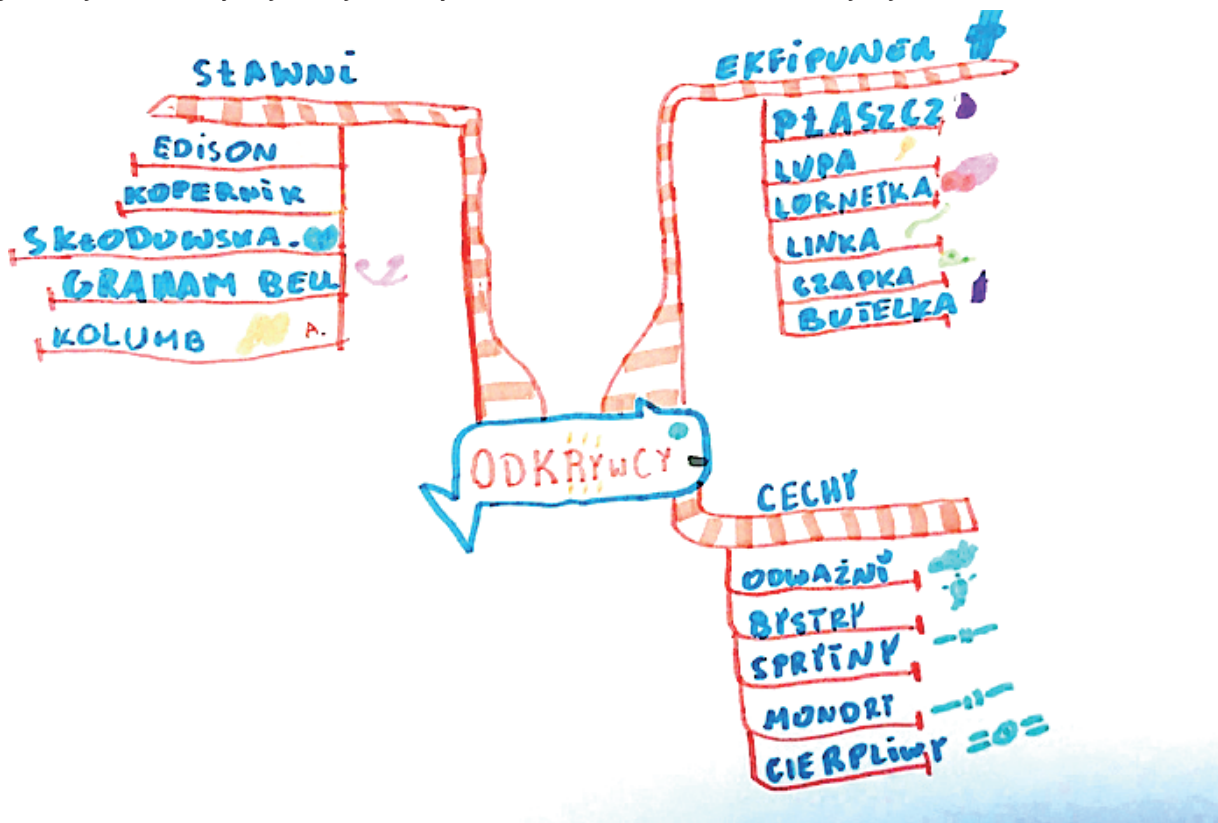 SŁAWNI
EDiSON
KOPERNiK
SKŁODOWSKA.
GRAHAM BELL
KOLUMB
A.
EKFiPUNER
PŁASZCZ
LUPA
LORNETKA
LINKA
CZAPKA
BUTELKA
ODKRYWCY
CECHY
ODWAŻNi
BYSTRY
SPRYTNY
MONDRY
CIERPLiWY